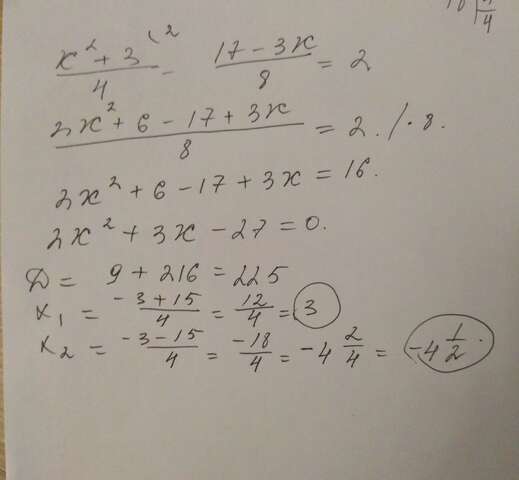 4
(x² + 3)/4 (² - (17 - 3x)/8 = 2
(2x² + 6 - 17 + 3x)/8 = 2. / · 8.
2x² + 6 - 17 + 3x = 16.
2x² + 3x - 27 = 0.
D = 9 + 216 = 225
x₁ = (-3 + 15)/4 = 12/4 = 3
x₂ = (-3 - 15)/4 = -18/4 = -4 2/4 = -4 1/2.